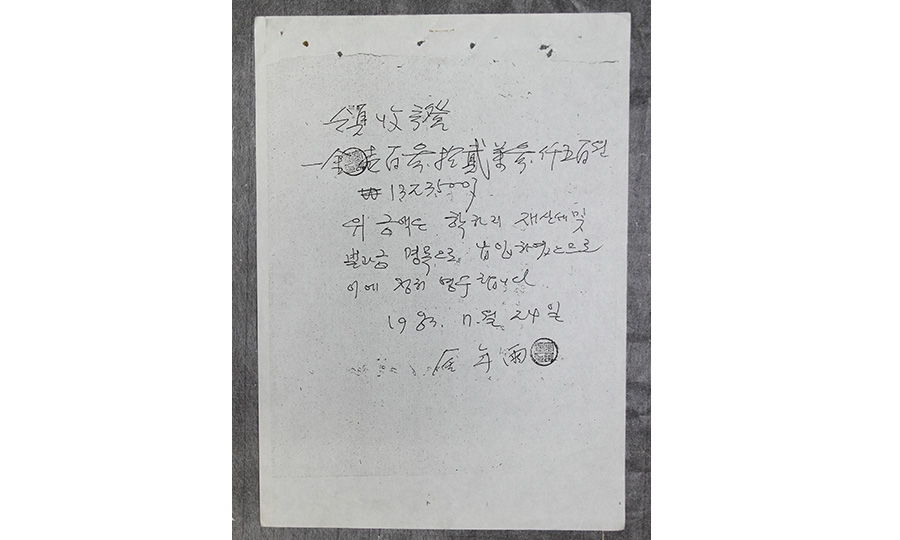 領收證
一金壹百參拾貳萬參仟五百원
₩ 1323500
위 금액은 학하리 재산세 및
벌과금 명목으로 납입하였으므로
이에 정히 영수합니다
1983. 11월 24일